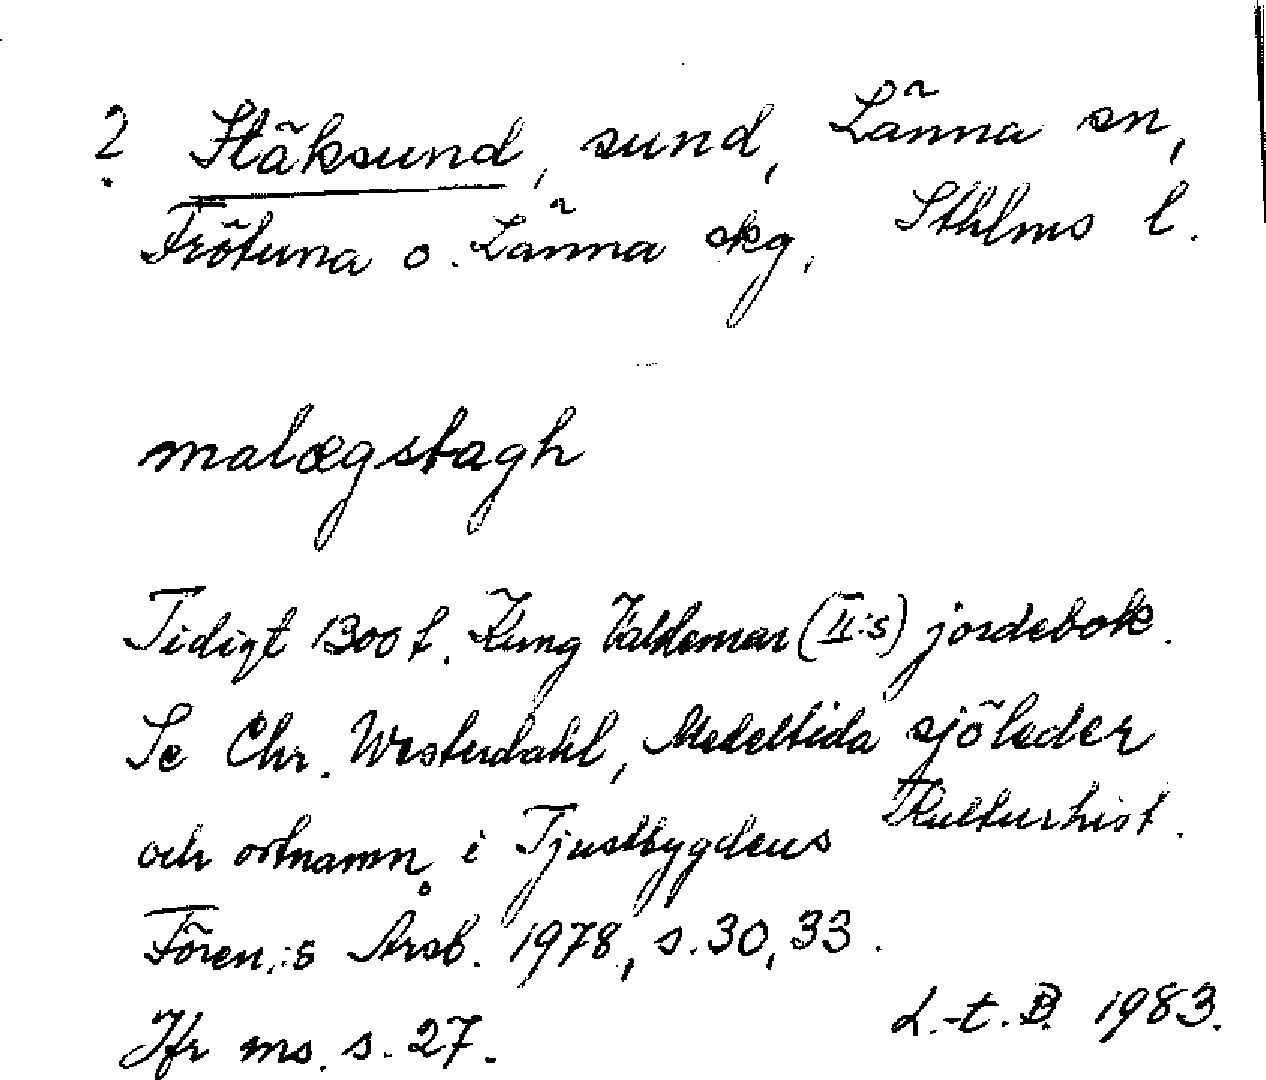 ? Stäksund, sund, Länna sn,
Frötuna o. Länna skg, Sthlms l.
malægstagh
Tidigt 1300 t. Kung Valdemar (II:s) jordebok.
Se Chr. Westerdahl, Medeltida sjöleder
och ortnamn i Tjustbygdens Kulturhist.
Fören.:s Årsb. 1978, s. 30, 33.
Jfr ms. s. 27.
L.-t. B. 1983.